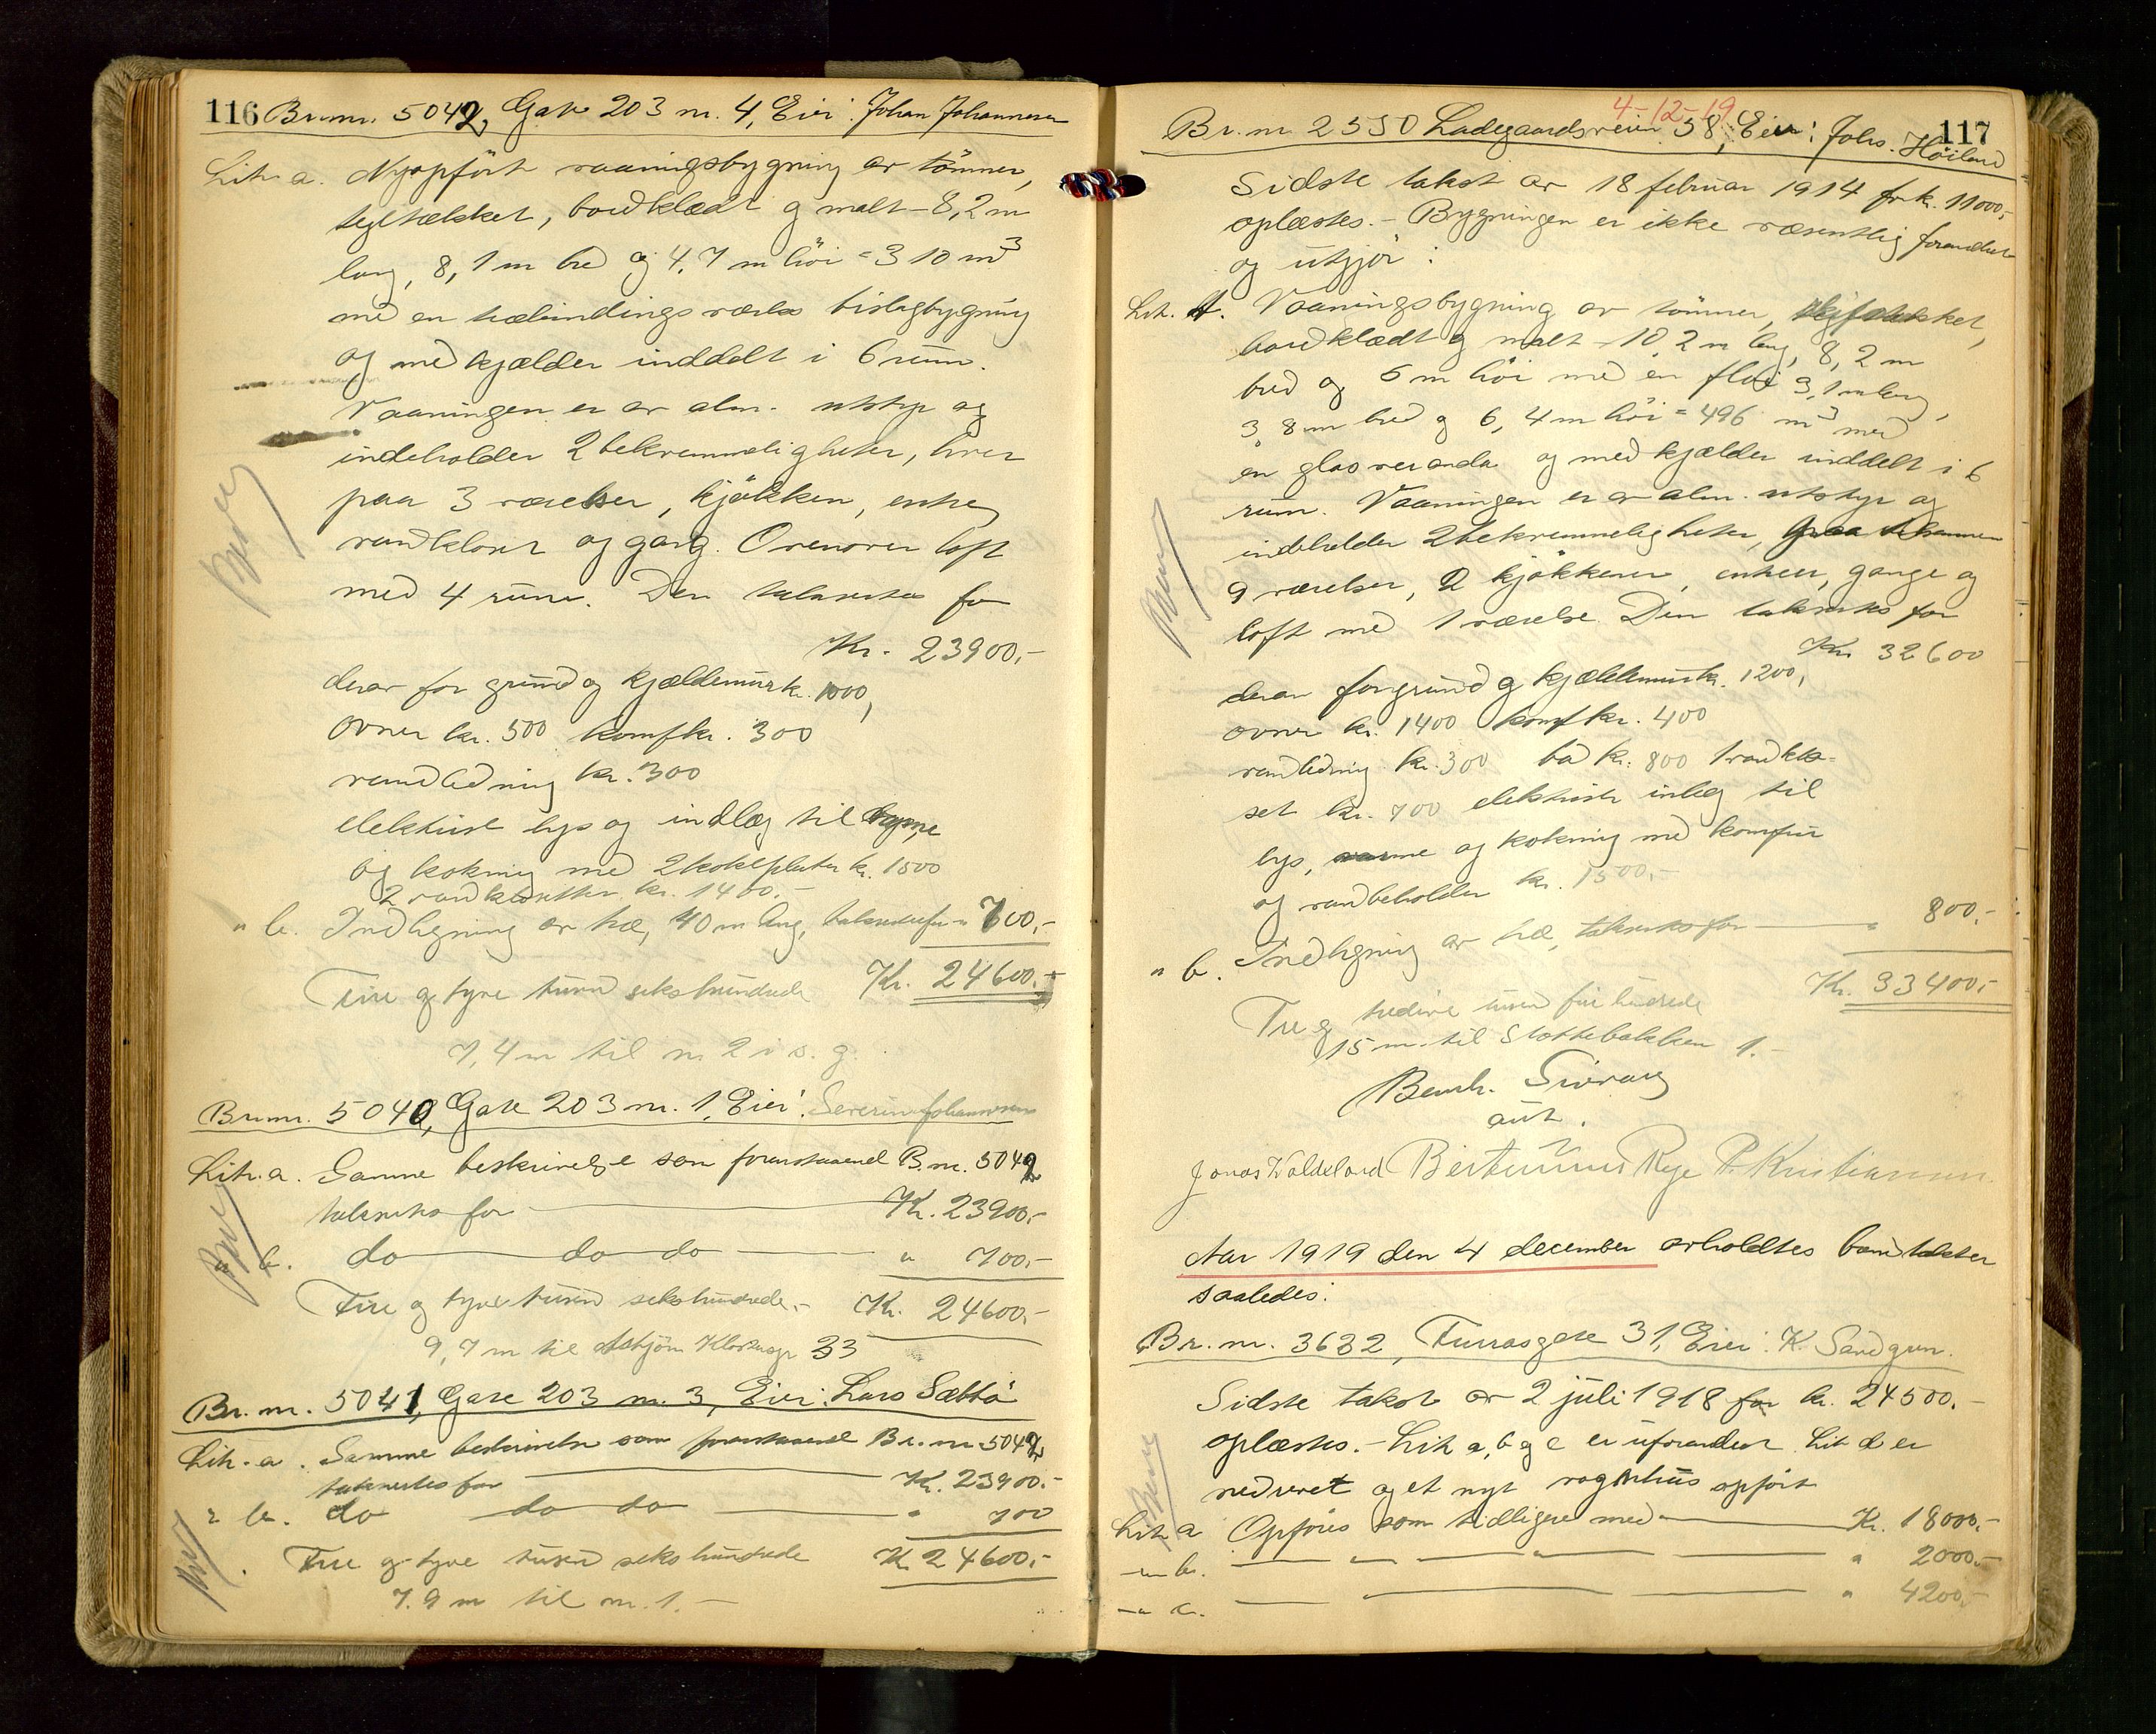 116 Br.nr. 5042, Gate 203 nr. 4, Eier: Johan Johannesen
Litr. a. Nyopført vaaningsbygning av tømmer,
tegltækket, bordklædt og malt – 8,2 m
lang, 8,1 m bred og 4,7 m høi = 310 m³
med en træbindingsverks bislagbygning
og med kjælder inddelt i 6 rum.
Vaaningen er av alm. utstyr og
indeholder 2 bekvemmeligheter, hver
paa 3 værelser, kjøkken, entre,
vandklosett og gang. Ovenover loft
med 4 rum. Den takseres for
Kr. 23900,-
derav for grund og kjældermur kr. 1000,
ovner kr. 500 komf kr. 300
vandledning kr. 300
elektrisk lys og indlæg til varme
og kokning med 2 kokeplater kr. 1500
2 vandklosetter kr. 1400.-
" b. Indhegning av træ, 40 m lang, takseres for " 700,-
Fire og tyve tusen sekshundrede Kr. 24600.-
7,4 m til nr. 2 i s. g.
Br.nr. 5040, Gate 203 nr. 1, Eier: Severin Johannesen
Litr. a. Samme beskrivelse som foranstaaende B.nr. 5042
takseres for Kr. 23900.-
" b. do do do " 700.-
Fire og tyve tusen sekshundrede.- Kr. 24600.-
9,7 m til Asbjørn Klostersgt 33
Br.nr. 5041, Gate 203 nr. 3, Eier: Lars Sæbbø
Litr. a. Samme beskrivelse som foranstaaende Br.nr. 5042
takseres for Kr. 23900.-
" b. do do do " 700
Fire og tyve tusen sekshundrede Kr 24600.-
7.9 m til nr. 1.-
4-12-19
117
Br.nr 2550 Ladegaardsveien 58, Eier: Johs. Høiland
Sidste takst av 18 februar 1914 for kr. 11000,-
oplæstes. – Bygningen er ikke væsentlig forandret
og utgjør:
Lit. A. Vaaningsbygning av tømmer,
bordklædt og malt – 10,2 m lang, 8,2 m
bred og 6 m høi med en fløi 3,1 m lang,
3,8 m bred og 6,4 m høi = 496 m³ med
en glasveranda og med kjælder inddelt i 6
rum. Vaaningen er av alm. utstyr og
indeholder 2 bekvemmeligheter,
9 værelser, 2 kjøkkener, entreer, gange og
loft med 1 værelse. Den takseres for
Kr. 32600
derav for grund og kjældermur kr. 1200,
ovner kr. 1400 komf kr. 400
vandledning kr. 300 bad kr. 800 1 vandklo-
set kr. 700 elektrisk inlæg til
lys, varme og kokning med komfur
og vandbeholder kr. 1500.-
" b. Indhegning av træ, takseres for " 800.-
Kr. 33400,-
Tre og tredive tusen fire hundrede
15 m. til Slottebakken 1.-
Bernh. Sivrang
aut.
Jonas Waldeland Bertinius Rege P. Kristiansen
Aar 1919 den 4 december avholdtes brandtakster
saaledes:
Br.nr. 3632, Furrasgate 31, Eier: K. Sandgren.
Sidste takst av 2 juli 1918 for kr. 24500.-
oplæstes. – Lit a, b og c er uforandret. Lit d er
nedrevet og et nyt vognhus opført
Litr a Opføres som tidligere med Kr. 18000.-
– " b. " " " 2000.-
– " c. " 4200.-